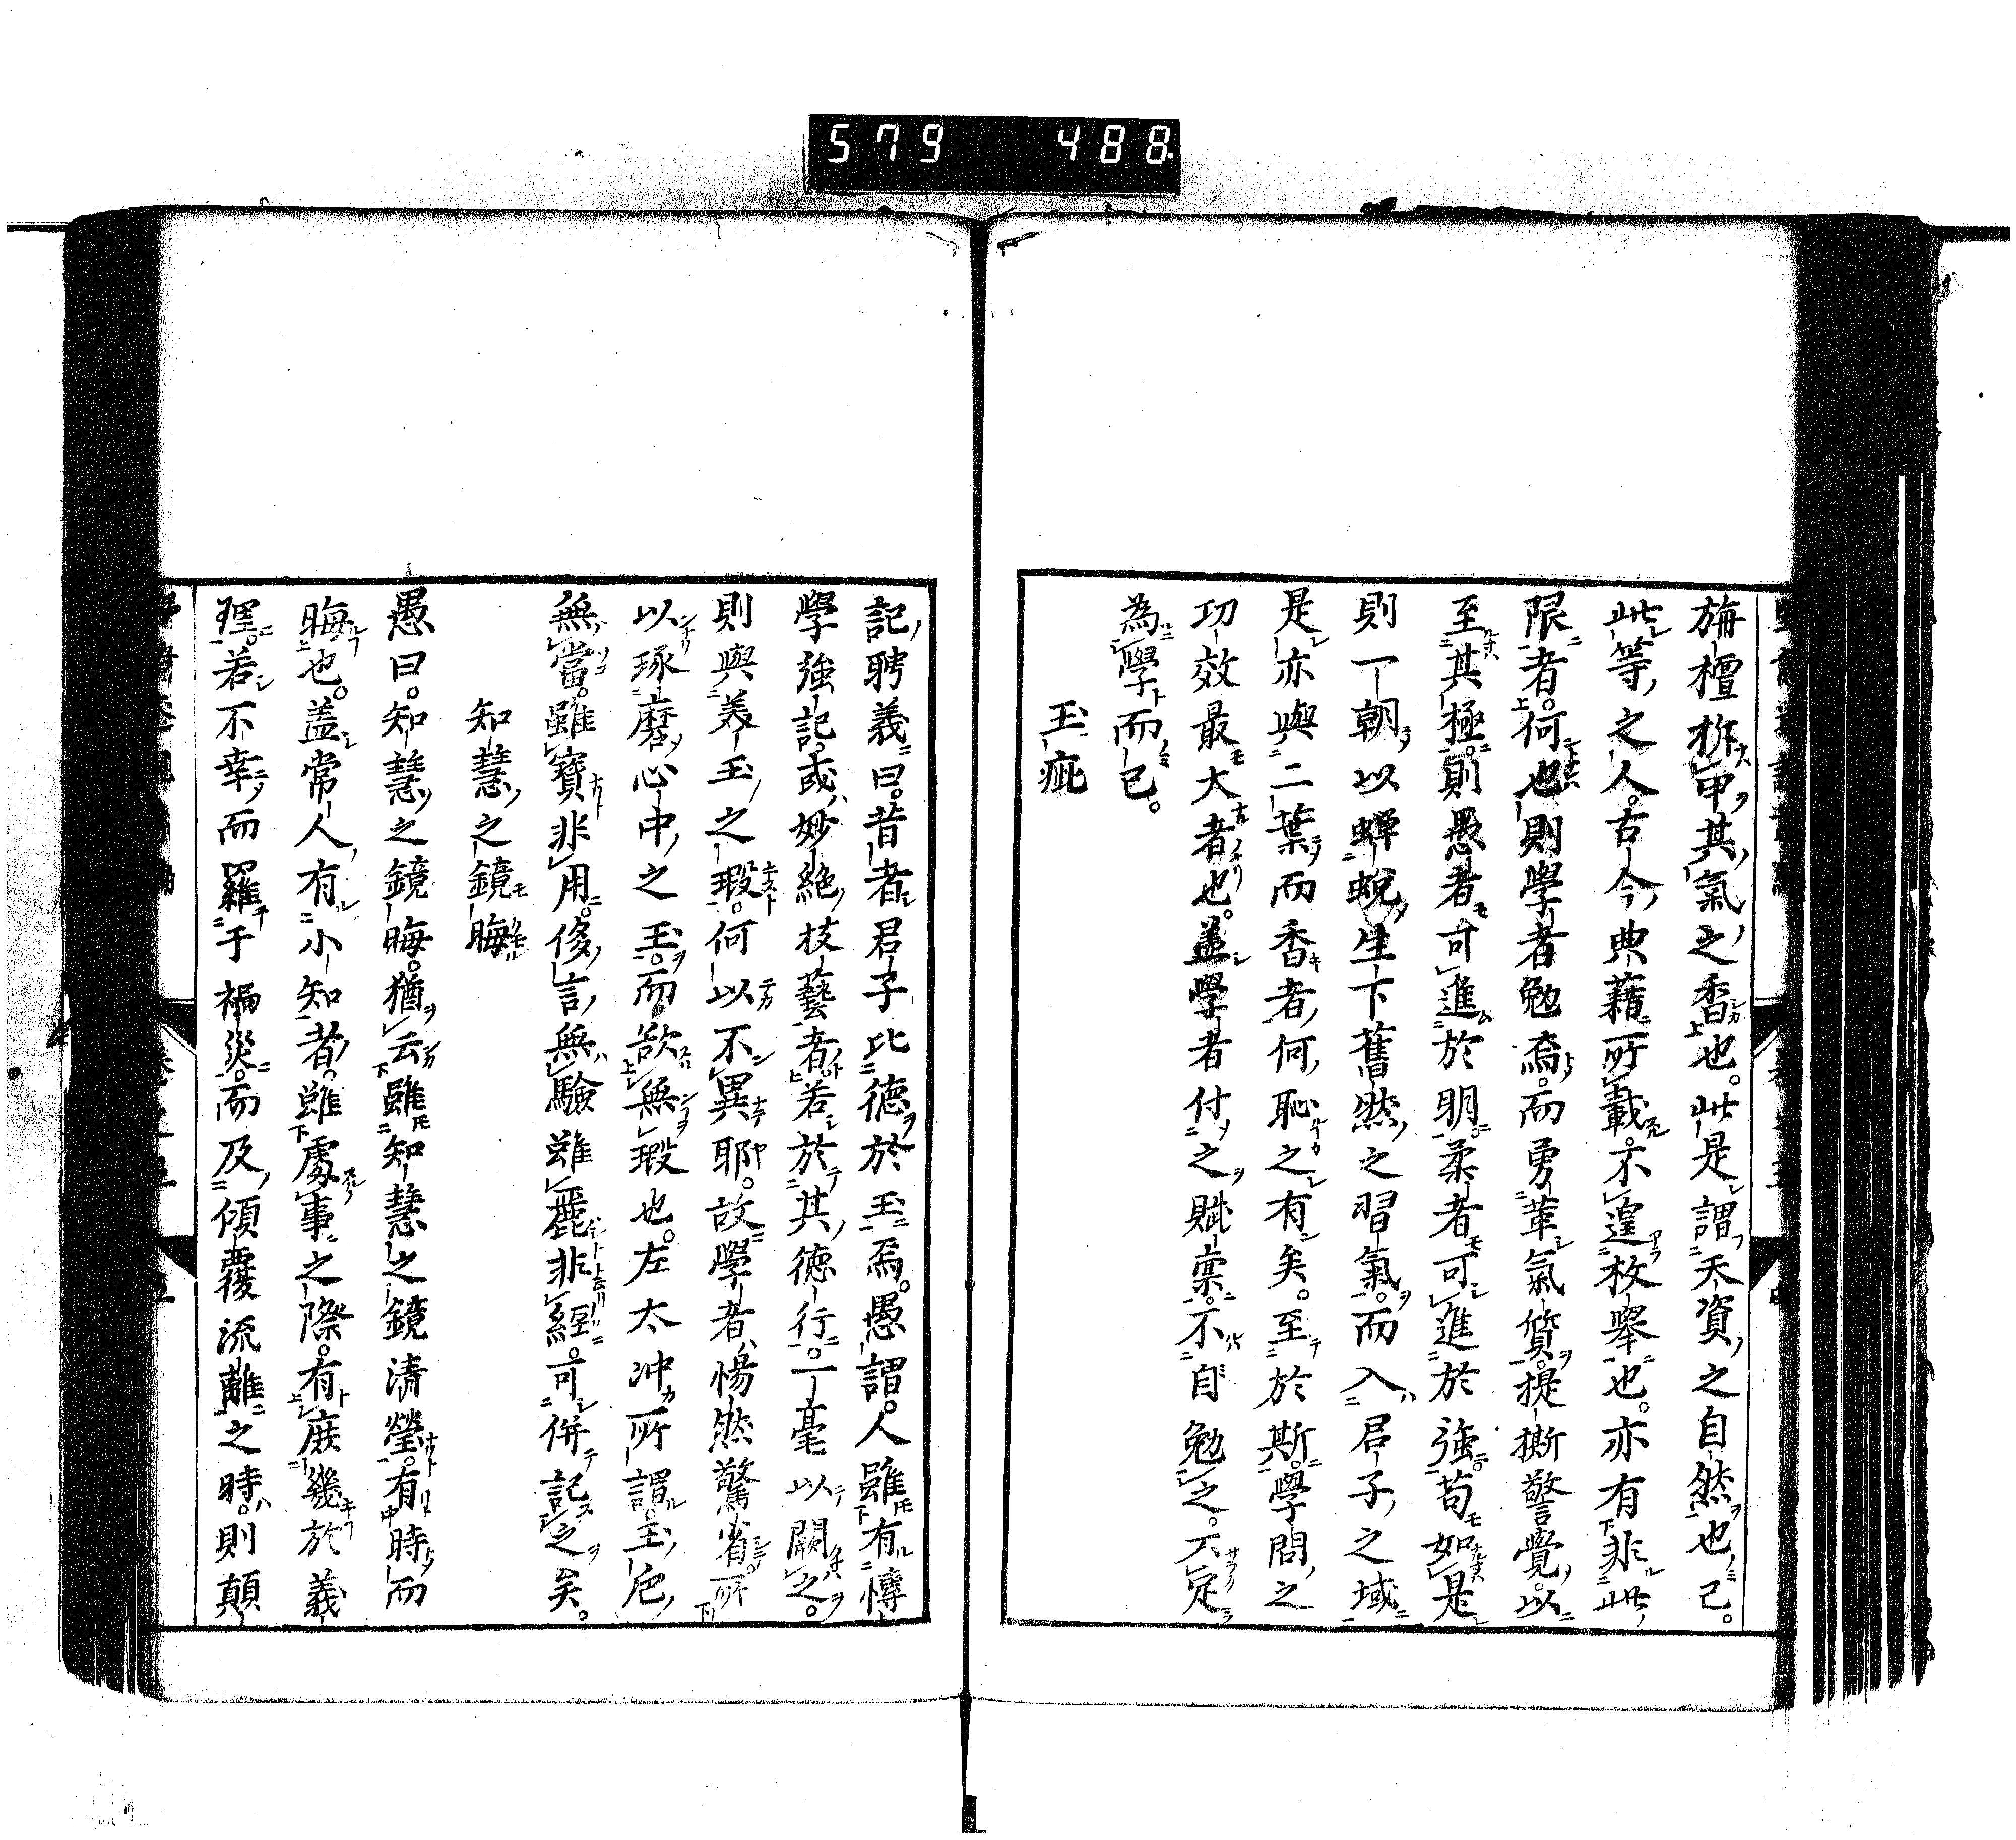 579 488
旃檀柝甲其氣之香也。此是謂天資之自然也已。
此等之人。古今典籍所載。不遑枚舉也。亦有非此
限者。何也則學者勉焉。而勇革氣質。提撕警覺。以
至其極。則愚者可進於明。柔者可進於強。苟如是
則一朝以蟬蛻生下舊然之習氣。而入君子之域
是亦與二葉而香者何恥之有矣。至於斯學問之
功效最大者也。蓋學者付之賦稟。不自勉之。不定
為學而已。
玉疵
記聘義曰。昔者君子比德於玉焉。愚謂。人雖有博
學強記。或妙絕技藝者若於其德行。一毫以闕之。
則與美玉之瑕。何以不異耶。故學者惕然驚省所
以琢磨心中之玉。而欲無瑕也。左太冲所謂。玉卮
無當。雖寶非用。侈言無驗雖麗非經。可併記之矣。
知慧之鏡晦
愚曰。知慧之鏡晦。猶云雖知慧之鏡清瑩。有時而
晦也。蓋常人有小知者。雖處事之際。有庶幾於義
理。若不幸而羅于禍災。而及傾覆流離之時。則顛